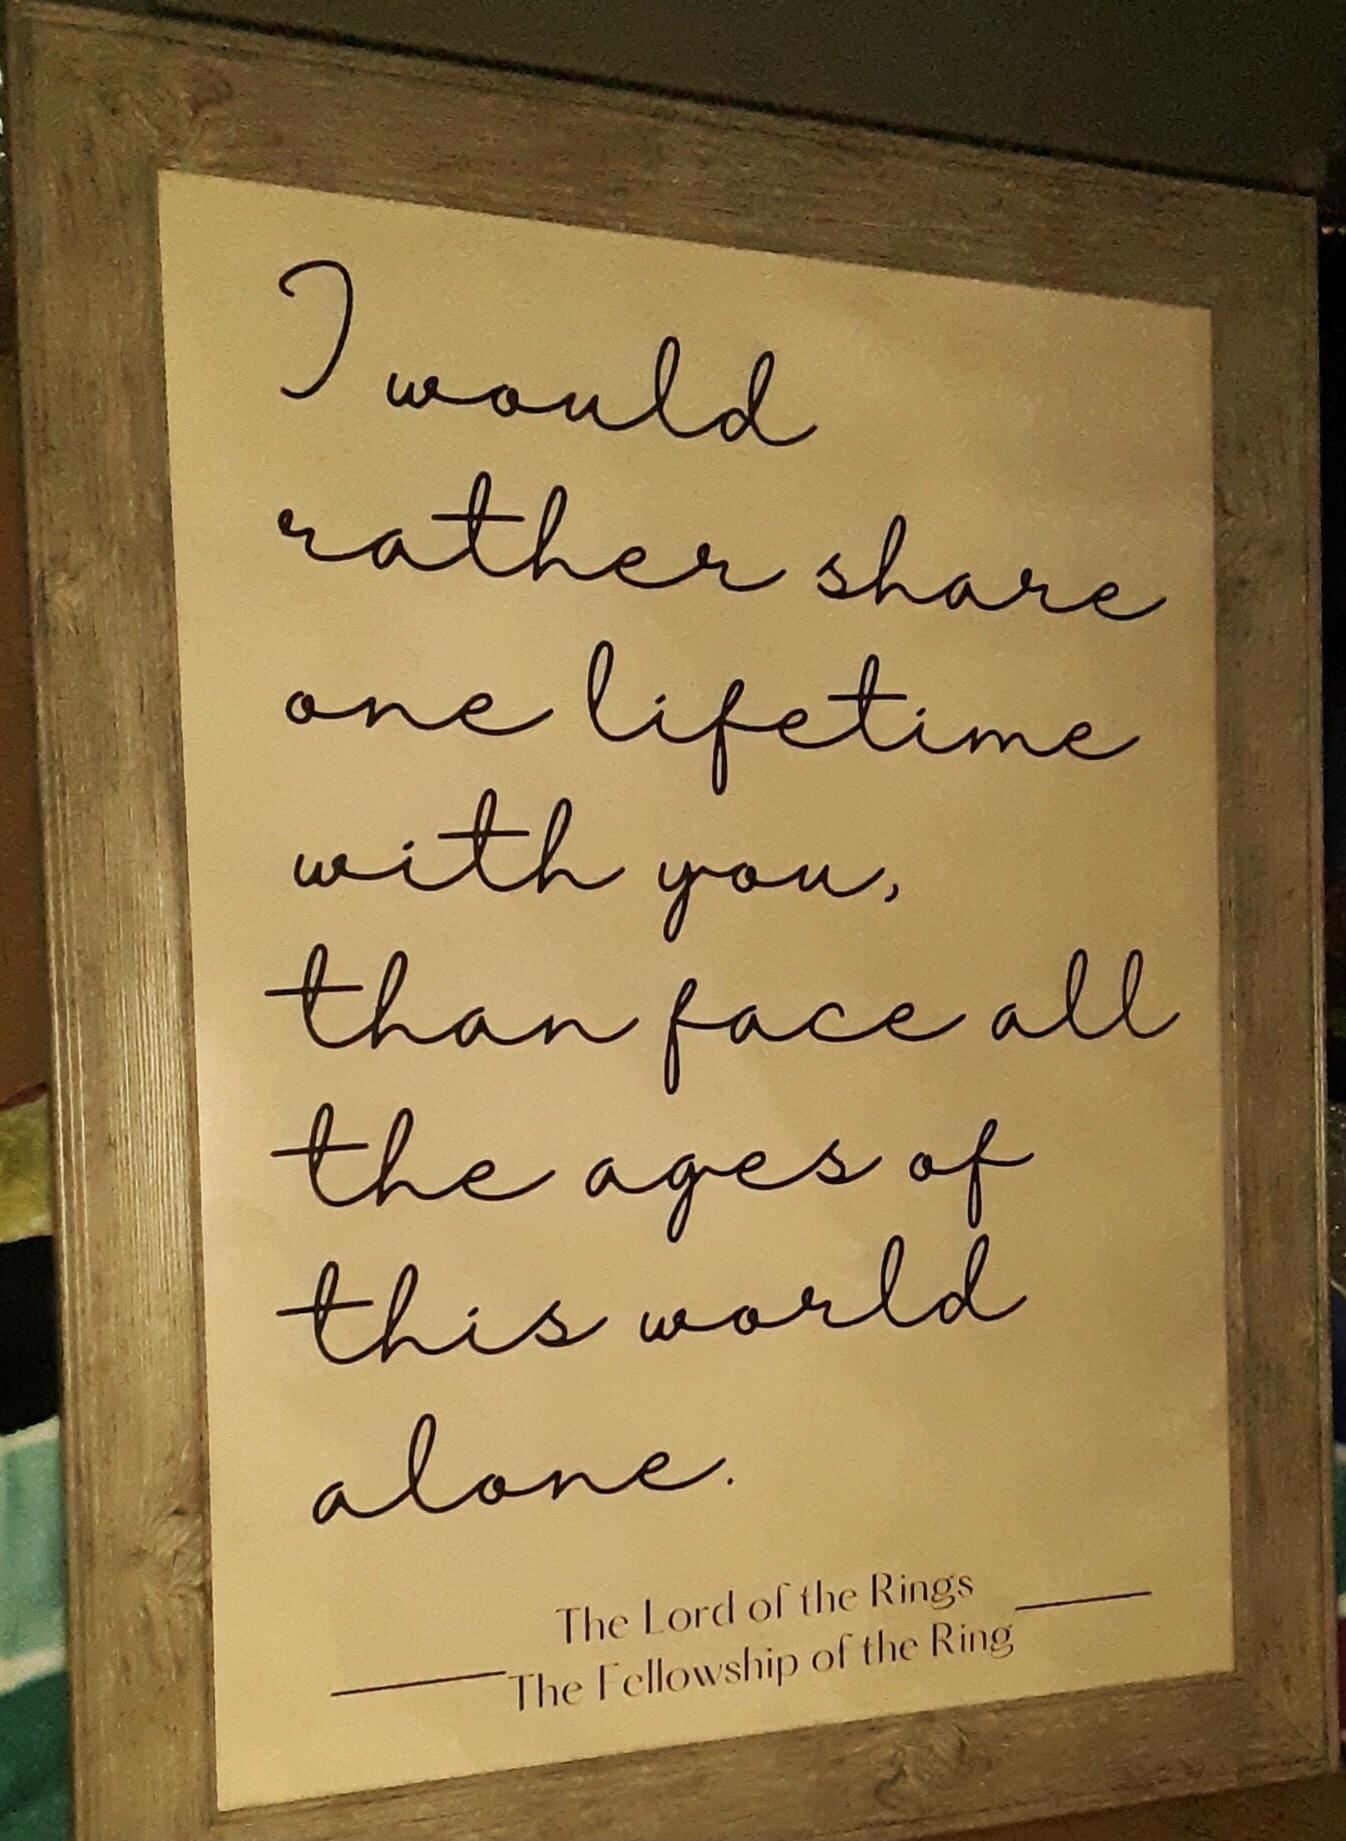 I would
rather share
one lifetime
with you,
than face all
the ages of
this world
alone.
The Lord of the Rings
The Fellowship of the Ring